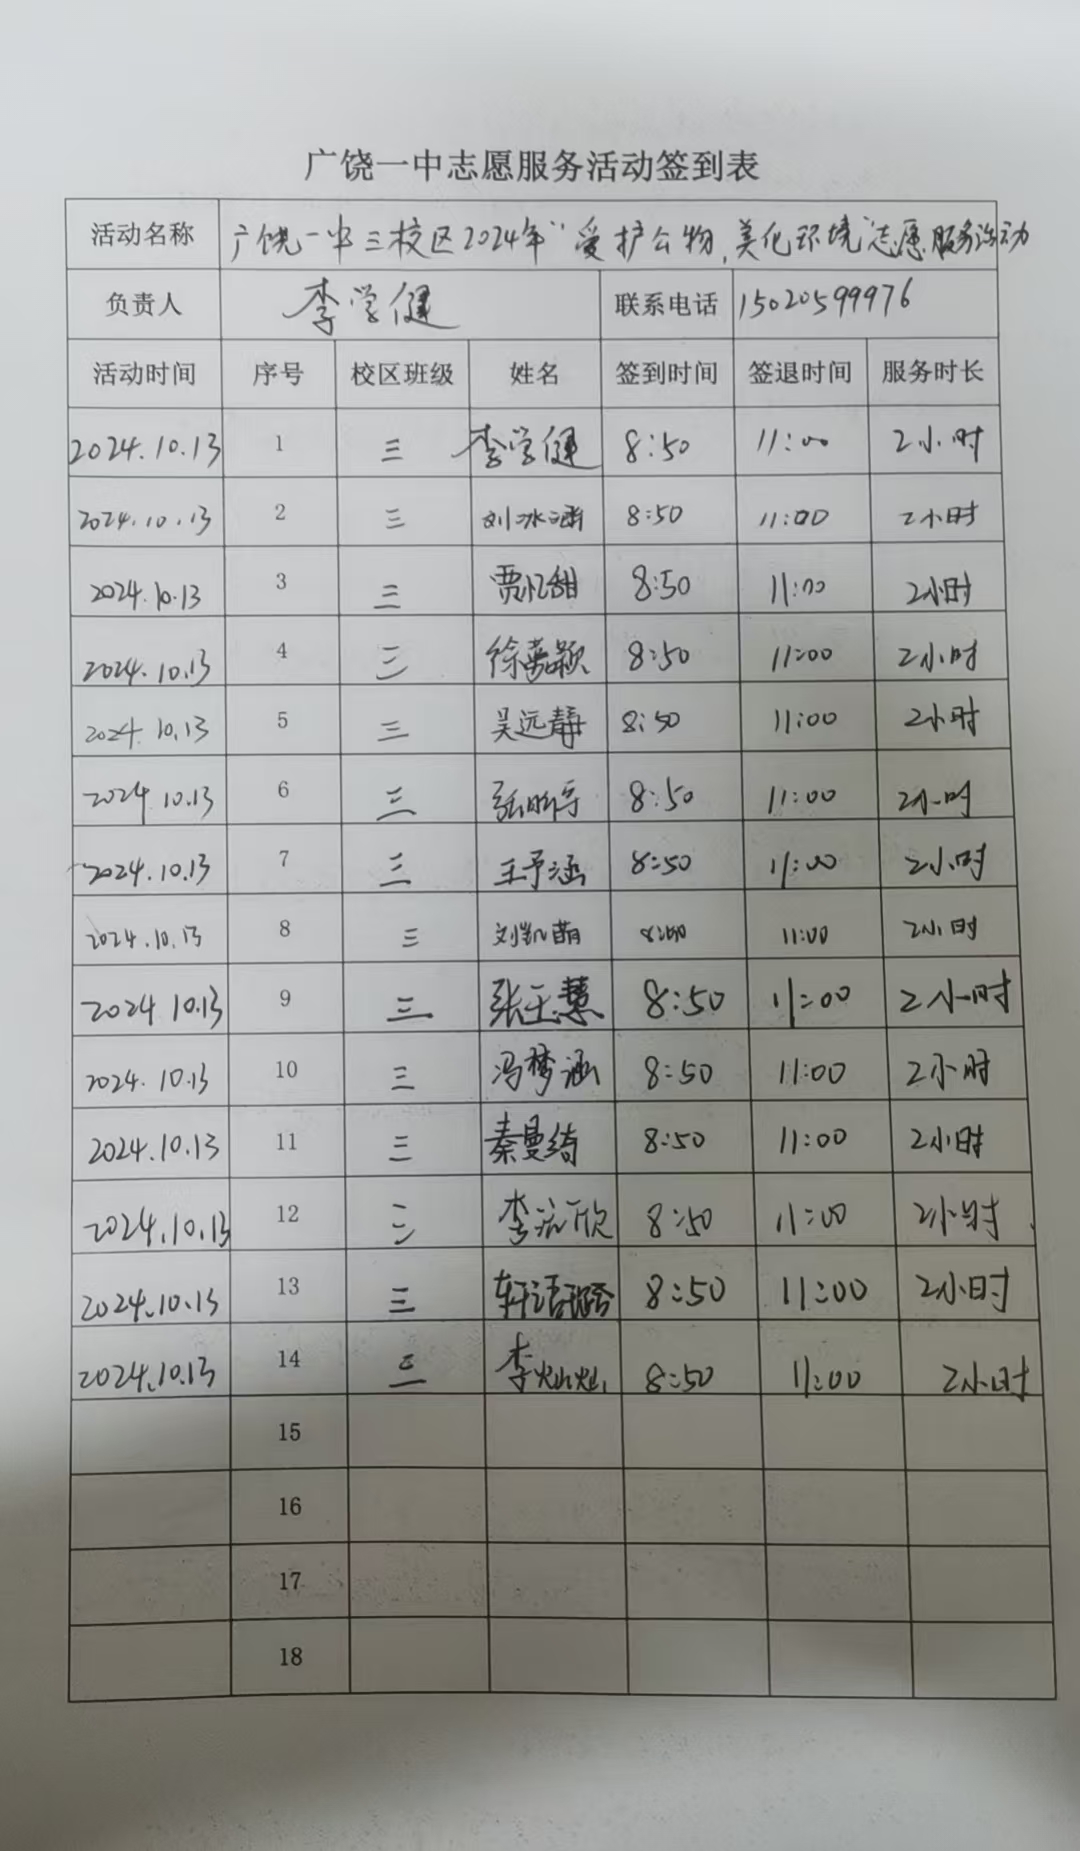 广饶一中志愿服务活动签到表
活动名称 广饶一中三校区2024年"爱护公物,美化环境"志愿服务活动
负责人 李学健 联系电话 15020599976
活动时间 序号 校区班级 姓名 签到时间 签退时间 服务时长
2024.10.13 1 三 李学健 8:50 11:00 2小时
2024.10.13 2 三 刘冰涵 8:50 11:00 2小时
2024.10.13 3 三 贾忆甜 8:50 11:00 2小时
2024.10.13 4 三 徐嘉颖 8:50 11:00 2小时
2024.10.13 5 三 吴远静 8:50 11:00 2小时
2024.10.13 6 三 张 8:50 11:00 2小时
2024.10.13 7 三 王予涵 8:50 11:00 2小时
2024.10.13 8 三 刘凯萌 8:50 11:00 2小时
2024.10.13 9 三 张玉慧 8:50 11:00 2小时
2024.10.13 10 三 冯梦涵 8:50 11:00 2小时
2024.10.13 11 三 秦曼绮 8:50 11:00 2小时
2024.10.13 12 三 李 欣 8:50 11:00 2小时
2024.10.13 13 三 轩语璐 8:50 11:00 2小时
2024.10.13 14 三 李灿灿 8:50 11:00 2小时
15
16
17
18